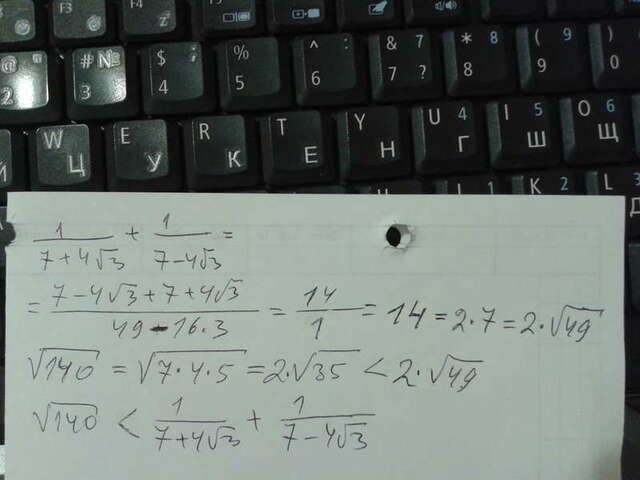 F3 F4
@ 2 # № 3 $ 4 % 5 ^ : 6 & 7 7 ? * 8 8 ( 9 9 ) 0
Й W Ц E У R К T Е Y Н U 4 Г I 5 Ш O 6 Щ
J 1 K 2 L 3
1/(7+4√3) + 1/(7-4√3) =
= (7-4√3+7+4√3)/(49-16·3) = 14/1 = 14 = 2·7 = 2·√49
√140 = √(7·4·5) = 2·√35 < 2·√49
√140 < 1/(7+4√3) + 1/(7-4√3)